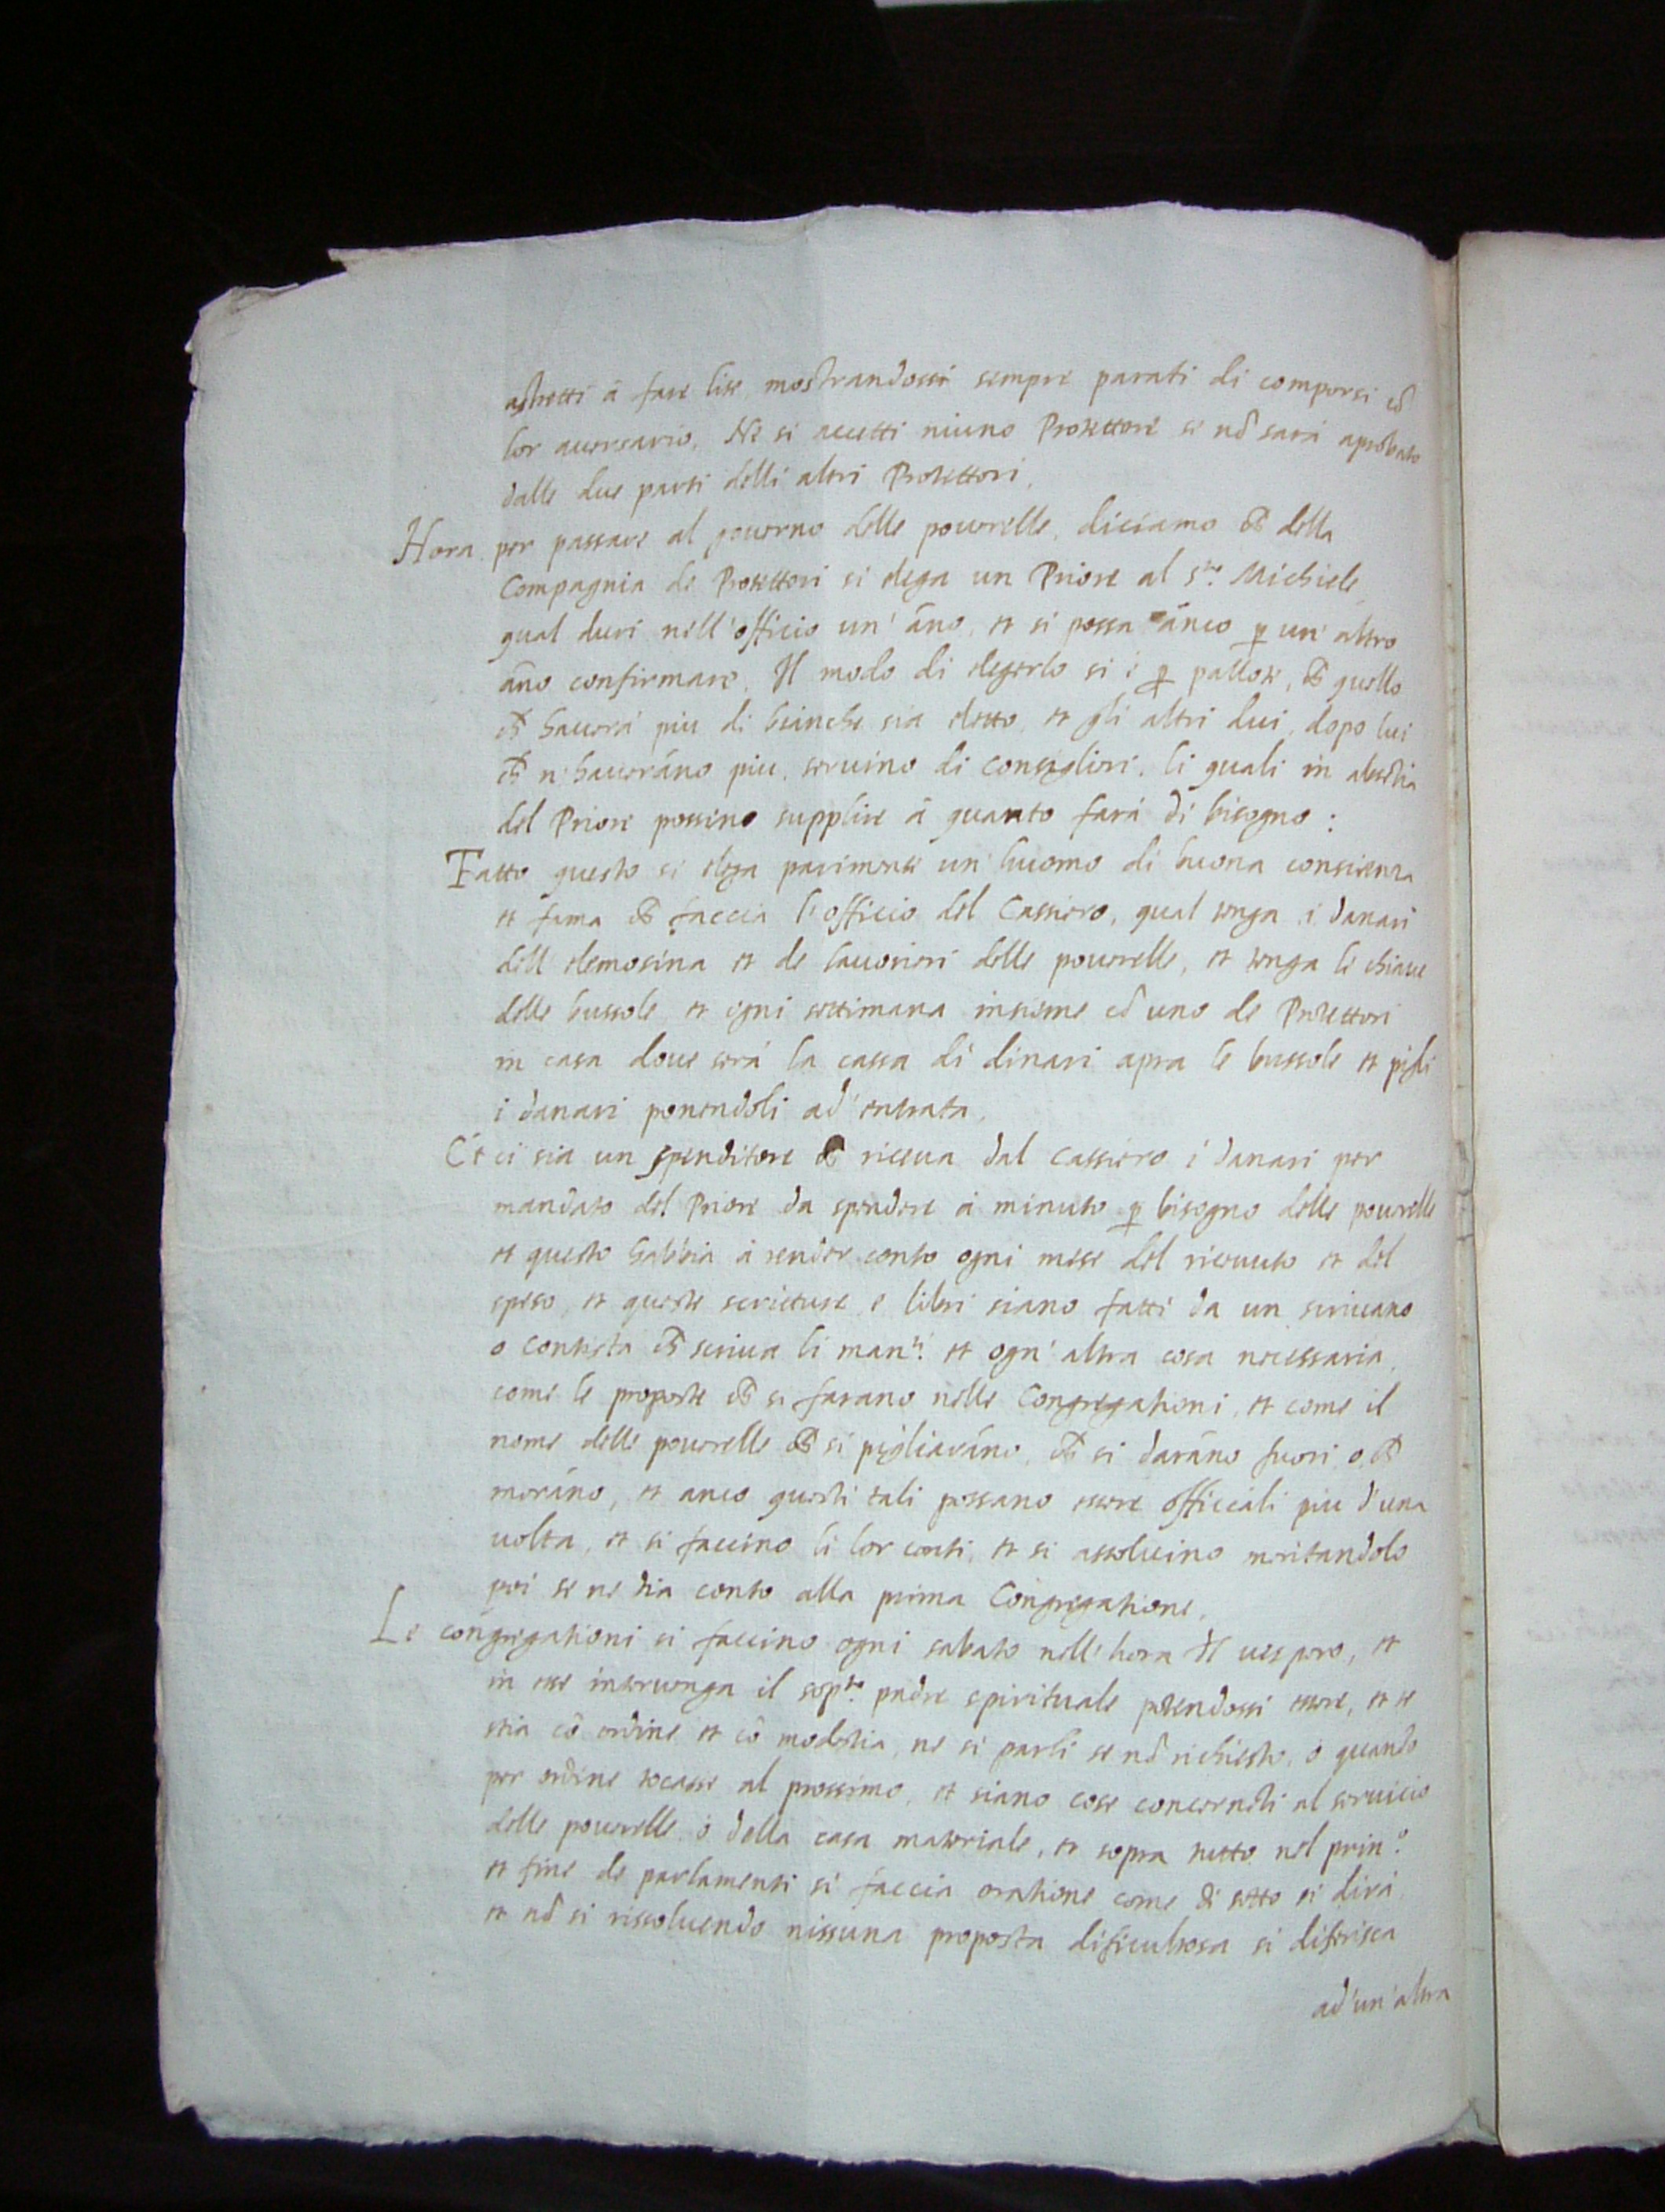 astretti à fare lite, mostrandossi sempre parati di comporsi cō
lor auersario, Nè si accetti niuno Protettore se nō sarà aprobato
dalle due parti delli altri Protettori.
Hora per passare al gouerno delle pouerelle, diciamo ch̄ della
Compagnia de Protettori si elega un Priore al s.to Michiele
qual duri nell'officio un' āno, et si possa anco ꝑ un' altro
āno confirmare. Il modo di elegerlo si è ꝑ pallote, ch̄ quello
ch̄ hauerà piu di bianche sia eletto, et gli altri dui, dopo lui
ch̄ n'haueráno piu, seruino di consiglieri, li quali in absētia
del Priore possino supplire à quanto fará di bisogno:
Fatto questo si elega parimente un huomo di buona conscienza
et fama ch̄ faccia l'officio del Cassiero, qual tenga i danari
dell elemosina et de lauorieri delle pouerelle, et tenga le chiaue
delle bussole et ogni settimana insieme cō uno de Protettori
in casa doue será la cassa di dinari apra le bussole et pigli
i danari ponendoli ad' entrata,
Et ci sia un spenditore ch̄ riceua dal cassiero i danari per
mandato del Priore da spendere à minuto ꝑ bisogno delle pouerelle
et questo habbia à render conto ogni mese del riceuuto et del
speso, et queste scritture e libri siano fatti da un scriuano
o contista ch̄ scriua li man.ti et ogn' altra cosa necessaria,
come le proposte ch̄ si farano nelle Congregationi, et come il
nome delle pouerelle ch̄ si pigliaráno, ch̄ si daráno fuori o ch̄
moráno, et anco questi tali possano essere officiali piu d'una
uolta, et si faccino li lor conti, et si assoluino meritandolo
poi se ne dia conto alla prima Congregatione,
Le congregationi si faccino ogni sabato nell'hora di uespero, et
in esse interuenga il sop.to padre spirituale potendossi essere, et se
stia cō ordine et cō modestia, ne si parli se nō richiesto, ò quando
per ordine tocasse al prossimo, et siano cose concernēti al seruicio
delle pouerelle ò della casa materiale, et sopra tutto nel prin.o
et fine de parlamenti si faccia oratione come di sotto si dirà,
et nō si rissoluendo nissuna proposta dificultosa si diferisca
ad'un'altra